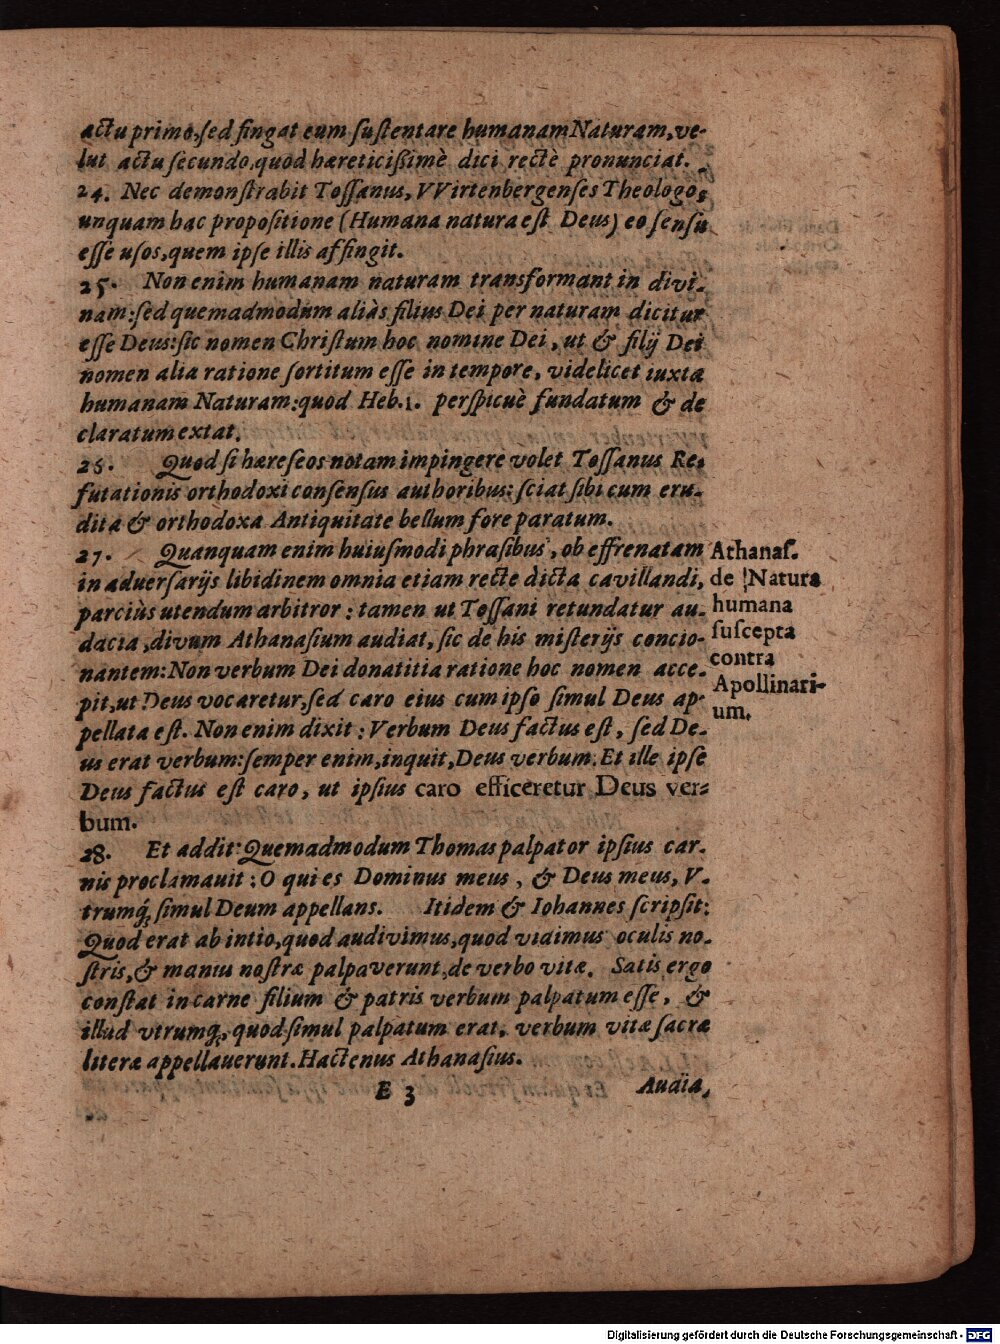 actu primo, sed fingat eum sustentare humanam Naturam, ve-
lut actu secundo, quod hæreticißimè dici rectè pronunciat.
24. Nec demonstrabit Tossanus, VVirtenbergenses Theologos
unquam hac propositione (Humana natura est Deus) eo sensu
esse usos, quem ipse illis affingit.
25. Non enim humanam naturam transformant in divi-
nam: sed quemadmodum aliàs filius Dei per naturam dicitur
esse Deus: sic nomen Christum hoc nomine Dei, ut & filij Dei
nomen alia ratione sortitum esse in tempore, videlicet iuxta
humanam Naturam: quod Heb. 1. perspicuè fundatum & de
claratum extat.
26. Quod si hæreseos notam impingere volet Tossanus Re-
futationis orthodoxi consensus authoribus: sciat sibi cum eru-
dita & orthodoxa Antiquitate bellum fore paratum.
27. Quanquam enim huiusmodi phrasibus, ob effrenatam
in adversarijs libidinem omnia etiam recte dicta cavillandi,
parciùs utendum arbitror: tamen ut Tossani retundatur au-
dacia, divum Athanasium audiat, sic de his misterijs concio-
nantem: Non verbum Dei donatitia ratione hoc nomen acce-
pit, ut Deus vocaretur, sed caro eius cum ipso simul Deus ap-
pellata est. Non enim dixit: Verbum Deus factus est, sed De-
us erat verbum: semper enim, inquit, Deus verbum. Et ille ipse
Deus factus est caro, ut ipsius caro efficeretur Deus ver-
bum.
Athanas.
de Natura
humana
suscepta
contra
Apollinari-
um.
28. Et addit: Quemadmodum Thomas palpator ipsius car-
nis proclamauit: O qui es Dominus meus, & Deus meus, V-
trumq́; simul Deum appellans. Itidem & Iohannes scripsit:
Quod erat ab intio, quod audivimus, quod vidimus oculis no-
stris, & manus nostræ palpaverunt, de verbo vitæ. Satis ergo
constat in carne filium & patris verbum palpatum esse, &
illud vtrumq́;, quod simul palpatum erat, verbum vitæ sacræ
literæ appellauerunt. Hactenus Athanasius.
E 3 Audia,
Digitalisierung gefördert durch die Deutsche Forschungsgemeinschaft - DFG